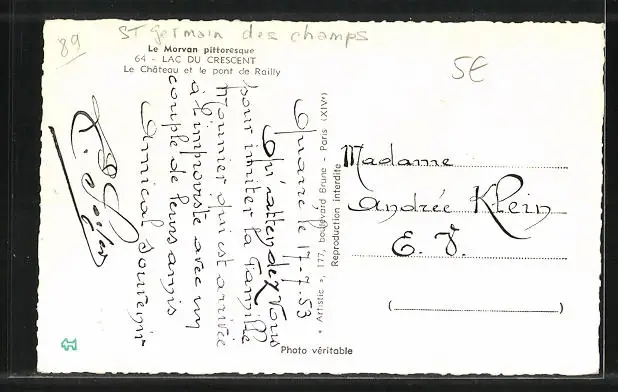 89
St germain des champs
Le Morvan pittoresque
64 - LAC DU CRESCENT
Le Château et le pont de Railly
5€
Quarré le 17.7.53
Qu'attendez Vous
pour imiter la famille
Monnier qui est arrivée
à l'improviste avec un
couple de leurs amis
Amical Souvenir
« Artistic », 177, boulevard Brune - Paris (XIVe)
Reproduction interdite
Madame
André Klein
E. V.
( )
Photo véritable